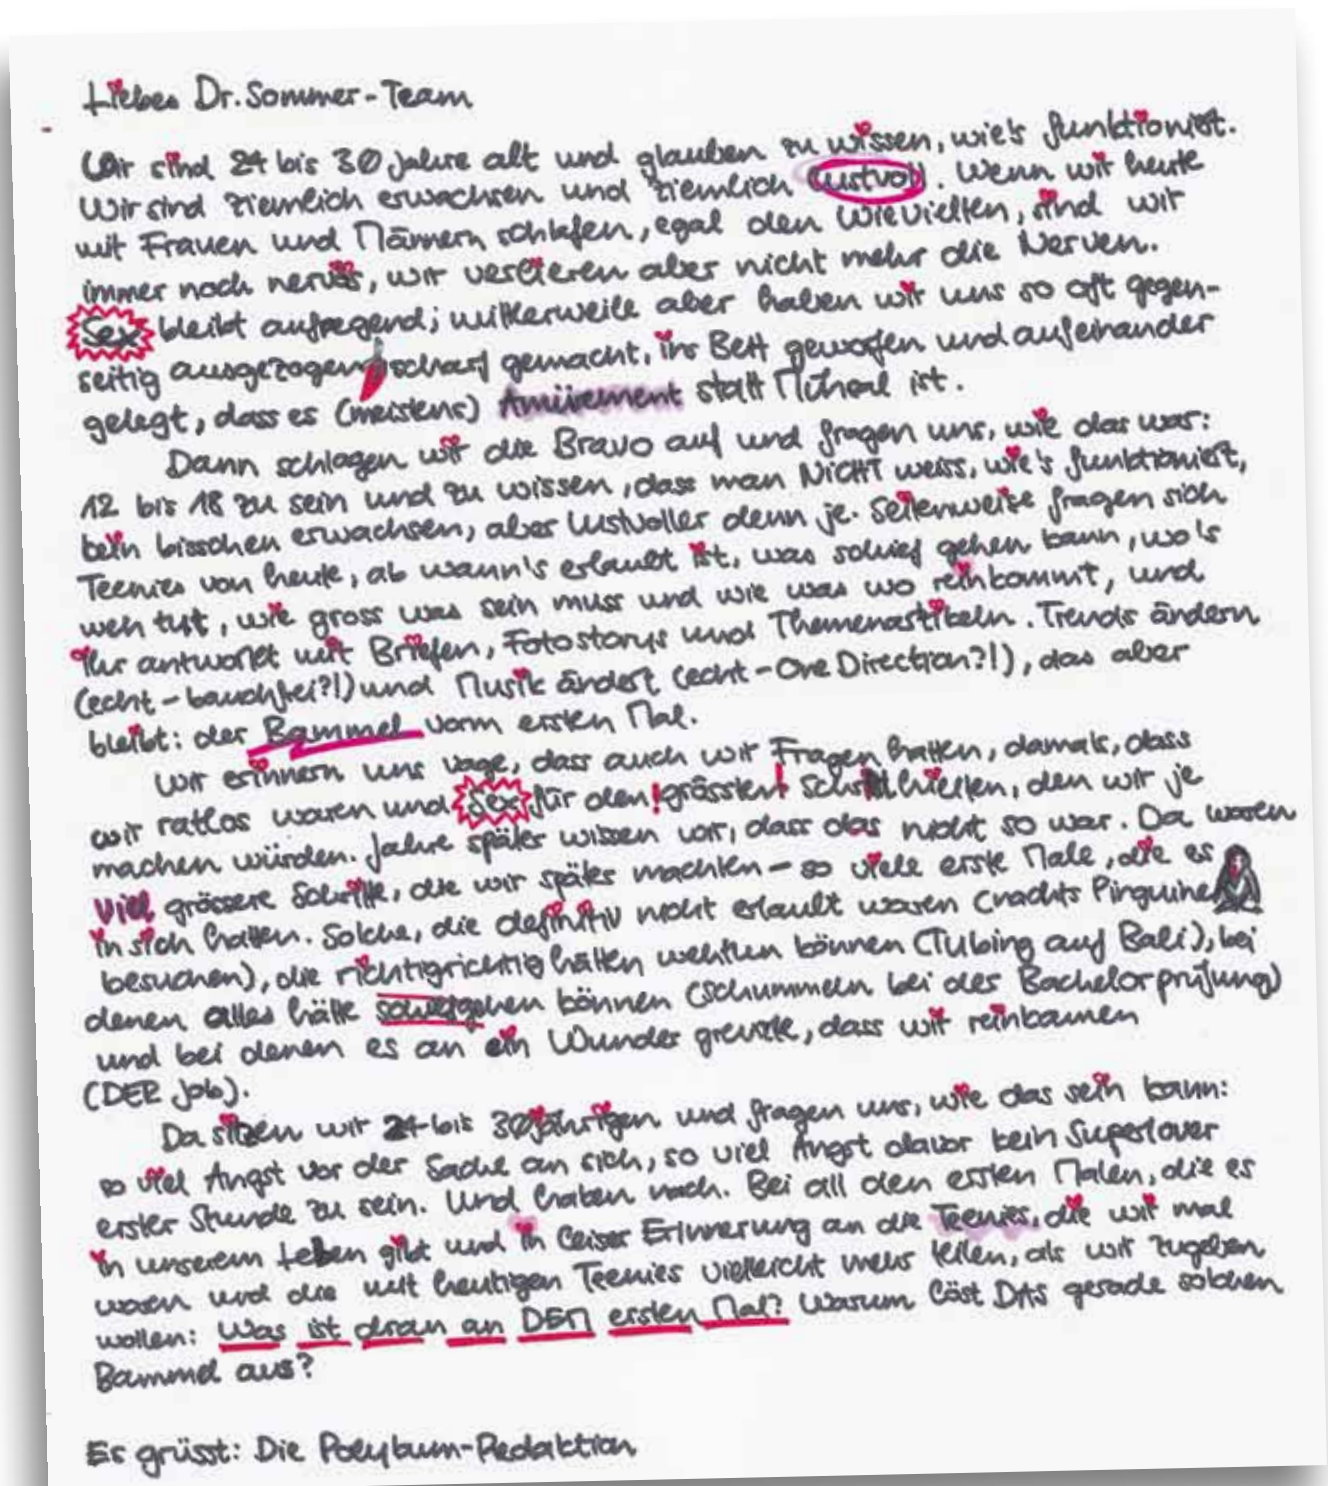 Liebes Dr. Sommer-Team
Wir sind 24 bis 30 Jahre alt und glauben zu wissen, wie's funktioniert.
Wir sind ziemlich erwachsen und ziemlich lustvoll. Wenn wir heute
mit Frauen und Männern schlafen, egal den wievielten, sind wir
immer noch nervös, wir verlieren aber nicht mehr die Nerven.
Sex bleibt aufregend; mittlerweile aber haben wir uns so oft gegen-
seitig ausgezogen, scharf gemacht, ins Bett geworfen und aufeinander
gelegt, dass es (meistens) Amüsement statt Mühsal ist.
Dann schlagen wir die Bravo auf und fragen uns, wie das war:
12 bis 18 zu sein und zu wissen, dass man NICHT weiss, wie's funktioniert,
kein bisschen erwachsen, aber lustvoller denn je. Seitenweise fragen sich
Teenies von heute, ab wann's erlaubt ist, was schief gehen kann, wo's
weh tut, wie gross was sein muss und wie was wo reinkommt, und
Ihr antwortet mit Briefen, Fotostorys und Themenartikeln. Trends ändern
(echt - bauchfrei?!) und Musik ändert (echt - One Direction?!), das aber
bleibt: der Bammel vorm ersten Mal.
Wir erinnern uns vage, dass auch wir Fragen hatten, damals, dass
wir ratlos waren und Sex für den grössten Schritt hielten, den wir je
machen würden. Jahre später wissen wir, dass das nicht so war. Da waren
viel grössere Schritte, die wir später machten - so viele erste Male, die es
in sich hatten. Solche, die definitiv nicht erlaubt waren (nachts Pinguine
besuchen), die richtigrichtig hätten wehtun können (Tubing auf Bali), bei
denen alles hätte schiefgehen können (schummeln bei der Bachelorprüfung)
und bei denen es an ein Wunder grenzte, dass wir reinkamen
(DER Job).
Da sitzen wir 24-bis 30jährigen und fragen uns, wie das sein kann:
so viel Angst vor der Sache an sich, so viel Angst davor kein Superlover
erster Stunde zu sein. Und haken nach. Bei all den ersten Malen, die es
in unserem Leben gibt und in leiser Erinnerung an die Teenies, die wir mal
waren und die mit heutigen Teenies vielleicht mehr teilen, als wir zugeben
wollen: Was ist dran an DEM ersten Mal? Warum löst DAS gerade solchen
Bammel aus?
Es grüsst: Die Polykum-Redaktion